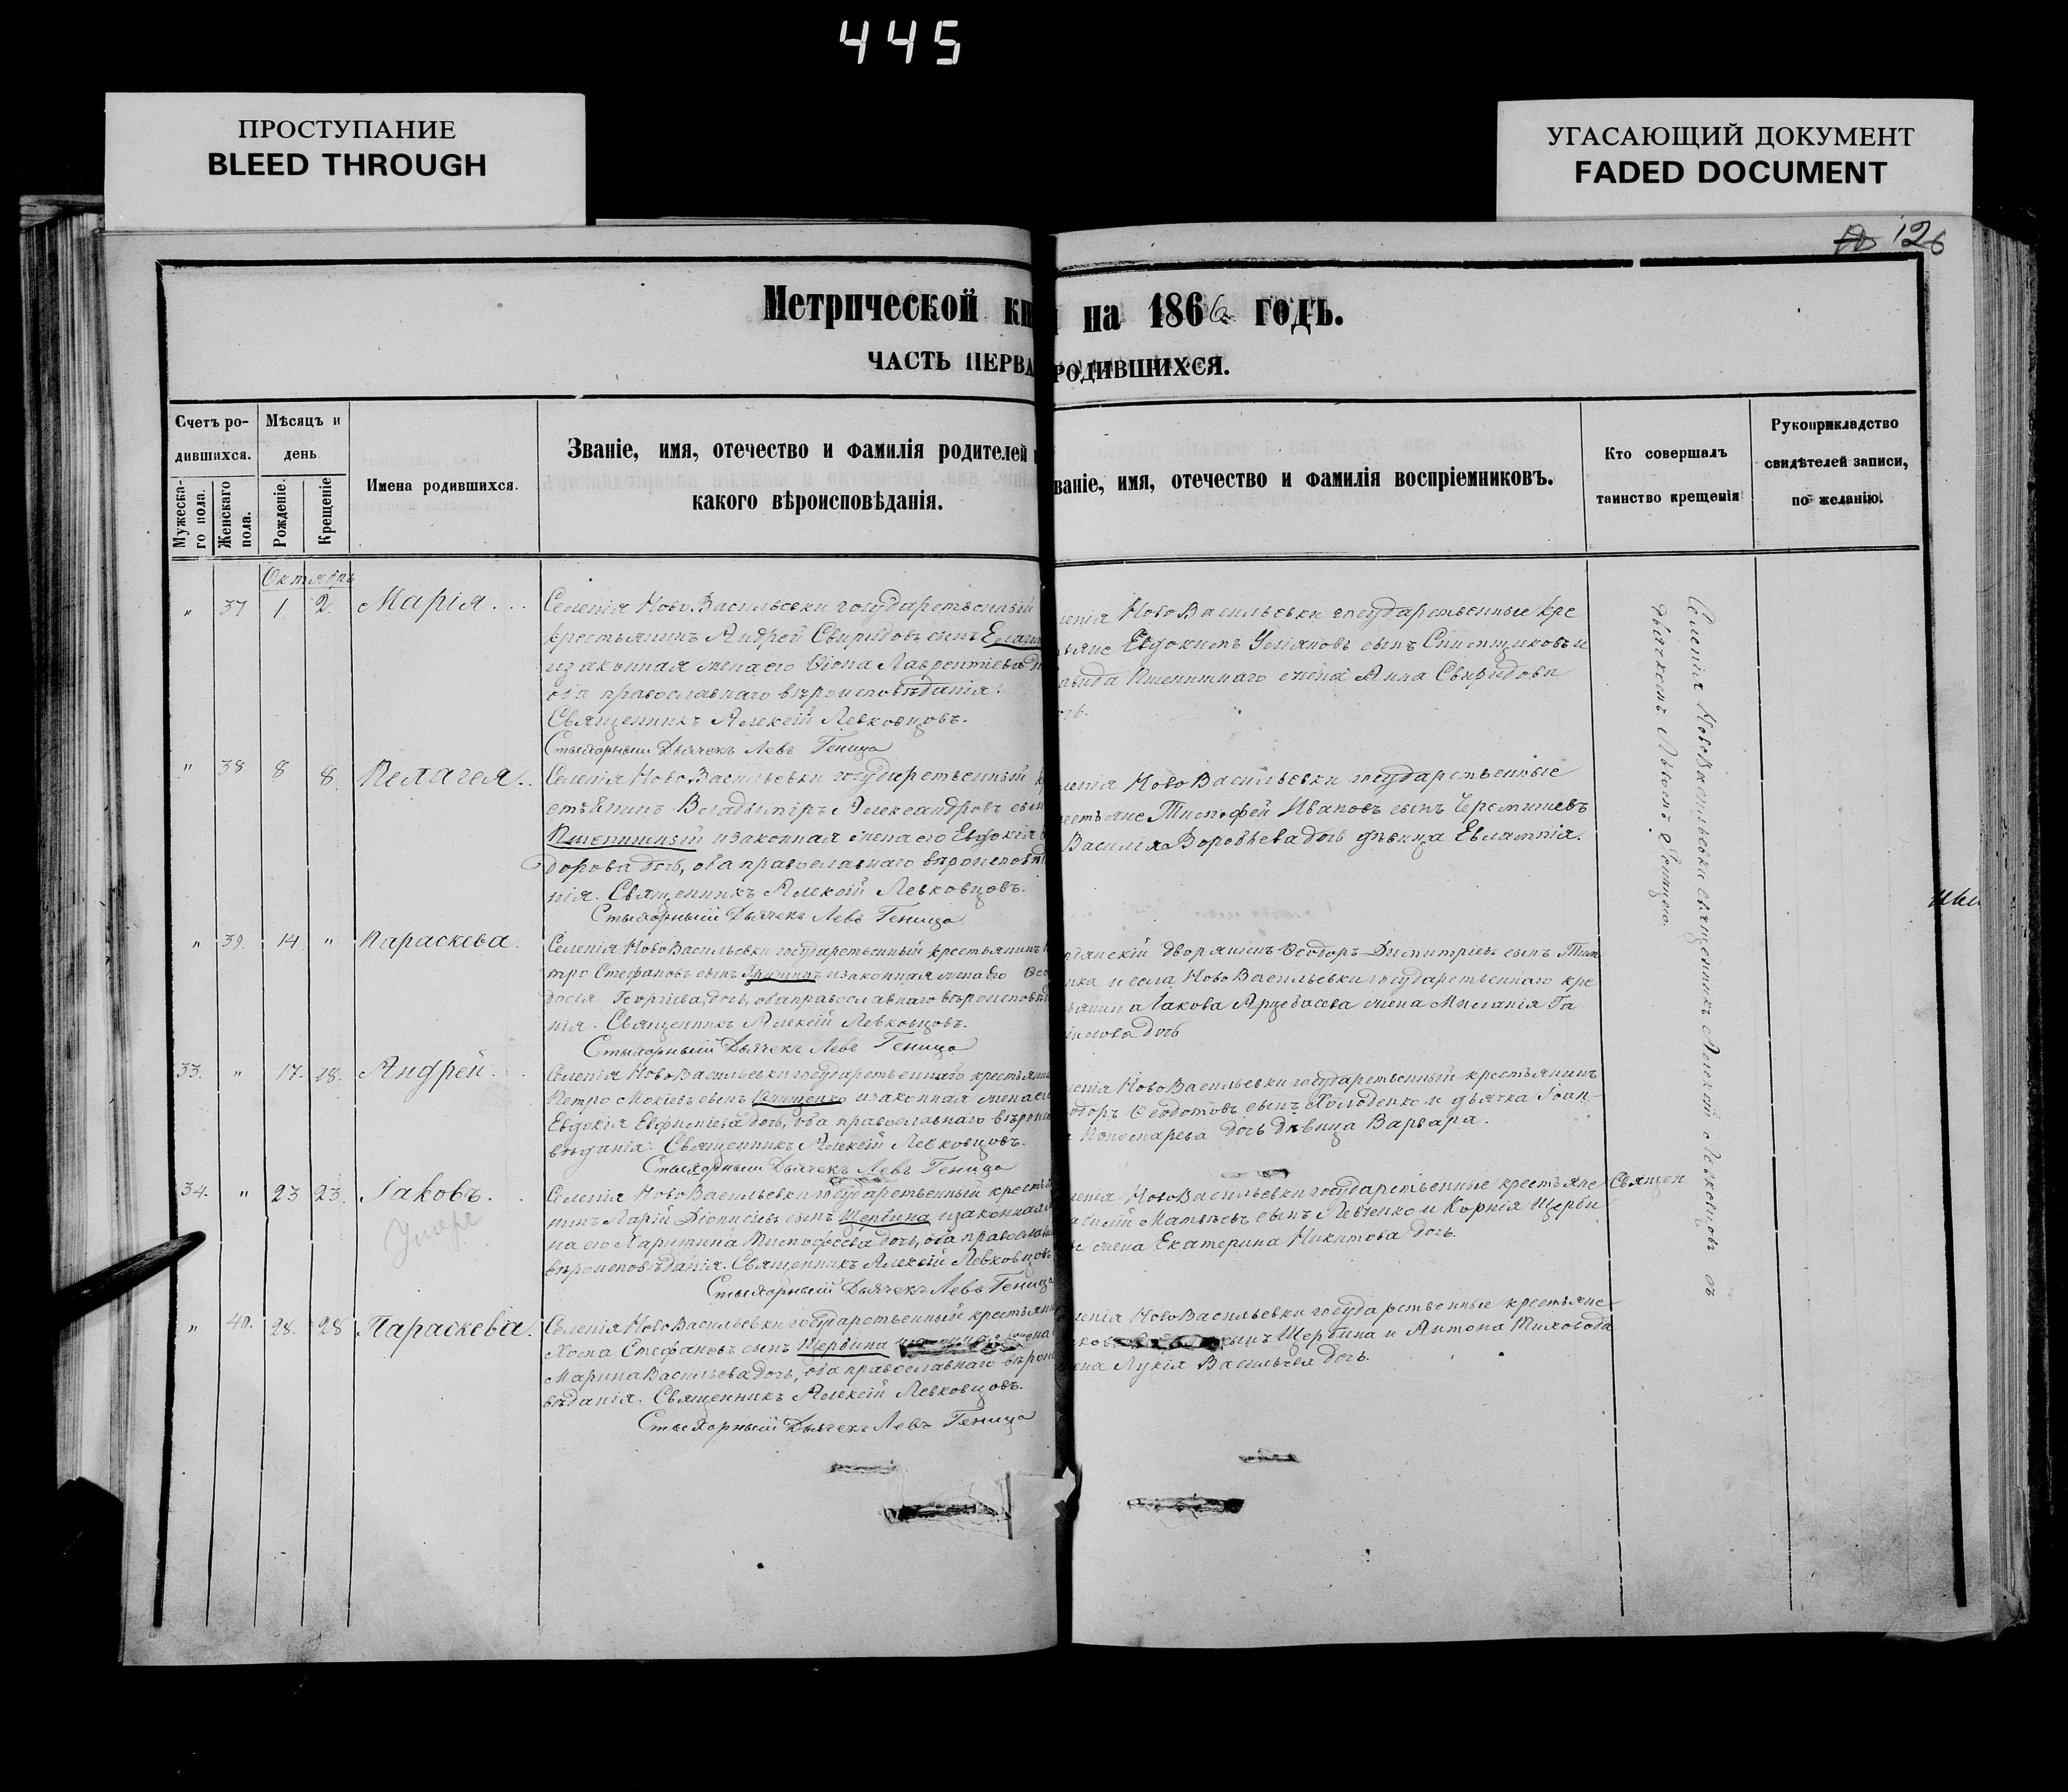 445
ПРОСТУПАНИЕ
BLEED THROUGH
УГАСАЮЩИЙ ДОКУМЕНТ
FADED DOCUMENT
126
Метрической кн на 1866 годъ.
ЧАСТЬ ПЕРВА РОДИВШИХСЯ.
Счетъ ро-
дившихся.
Мужеска-
го пола.
Женскаго
пола.
Мѣсяцъ и
день
Рожденіе.
Крещеніе
Имена родившихся.
Званіе, имя, отечество и фамилія родителей
какого вѣроисповѣданія.
ваніе, имя, отечество и фамилія воспріемниковъ.
Кто совершалъ
таинство крещенія
Рукоприкладство
свидѣтелей записи,
по желанію.
Октябрь
" 37 1 2. Марія.
Селенія НовоВасильевки государственный
крестьянинъ Андрей Свиридовъ сынъ
изаконная жена его Ѳіона Лаврентіева
оба православнаго вѣроисповѣданія.
Священникъ Алексій Левковцовъ.
Стихарный Дьячекъ Левъ Геница
ленія НовоВасильевки государственные кре
Евдокимъ сынъ и
жена Анна Свиридова
" 38 8 8. Пелагея.
Селенія НовоВасильевки государственный
Владиміръ Александровъ
Пшеничный изаконная жена его Евдокія
дорова дочь, оба православнаго вѣроисповѣд
нія. Священникъ Алексій Левковцовъ.
Стихарный Дьячекъ Левъ Геница
ленія НовоВасильевки государственные
Тимофей Ивановъ сынъ
Василія Воробьева дочь дѣвица Евлампія.
" 39. 14 " Параскева.
Селенія НовоВасильевки государственный крестьянинъ
тро Стефановъ сынъ изаконная жена его Ѳео
досія Георгіева дочь, оба православнаго вѣроисповѣд
нія. Священникъ Алексій Левковцовъ.
Стихарный Дьячекъ Левъ Геница
дянскій дворянинъ Ѳеодоръ Димитріевъ сынъ
ика и села НовоВасильевки государственнаго кре
Іакова Арцебасева жена Миланія Га
илова дочь
33. " 17. 18. Андрей.
Селенія НовоВасильевки государственнаго крестьянин
Петро Мокіевъ сынъ изаконная жена его
Евдокія Евфиміева дочь, оба православнаго вѣроис
вѣданія. Священникъ Алексій Левковцовъ.
Стихарный Дьячекъ Левъ Геница
ленія НовоВасильевки государственный крестьянинъ
одоръ Ѳеодотовъ сынъ Холоденко и дьячка Іоан-
а Пономарева дочь дѣвица Варвара.
34. " 23 23. Іаковъ.
Умеръ
Селенія НовоВасильевки государственный крестья
нинъ Ларій Діонисіевъ сынъ Щербина изаконная
на его Харитина Тимофеева дочь, оба православн
вѣроисповѣданія. Священникъ Алексій Левковцовъ
Стихарный Дьячекъ Левъ Геница
ленія НовоВасильевки государственные крестьяне
асилій Матвѣевъ сынъ Левченко и Корнія Щерби
жена Екатерина Никитова дочь.
Священ
" 40. 28. 28 Параскева.
Селенія НовоВасильевки государственный крестьянин
Хома Стефановъ сынъ Щербина жена
Марина Васильева дочь, оба православнаго вѣроис
вѣданія. Священникъ Алексій Левковцовъ.
Стихарный Дьячекъ Левъ Геница
ленія НовоВасильевки государственные крестьяне
ков сынъ Щербина и Антона Тиховода
жена Лукія Васильева дочь.
Селенія НовоВасильевки священникъ Алексій Левковцовъ съ
дьячкомъ Львомъ Геницею.